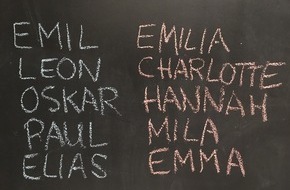 EMIL
LEON
OSKAR
PAUL
ELIAS
EMILIA
CHARLOTTE
HANNAH
MILA
EMMA